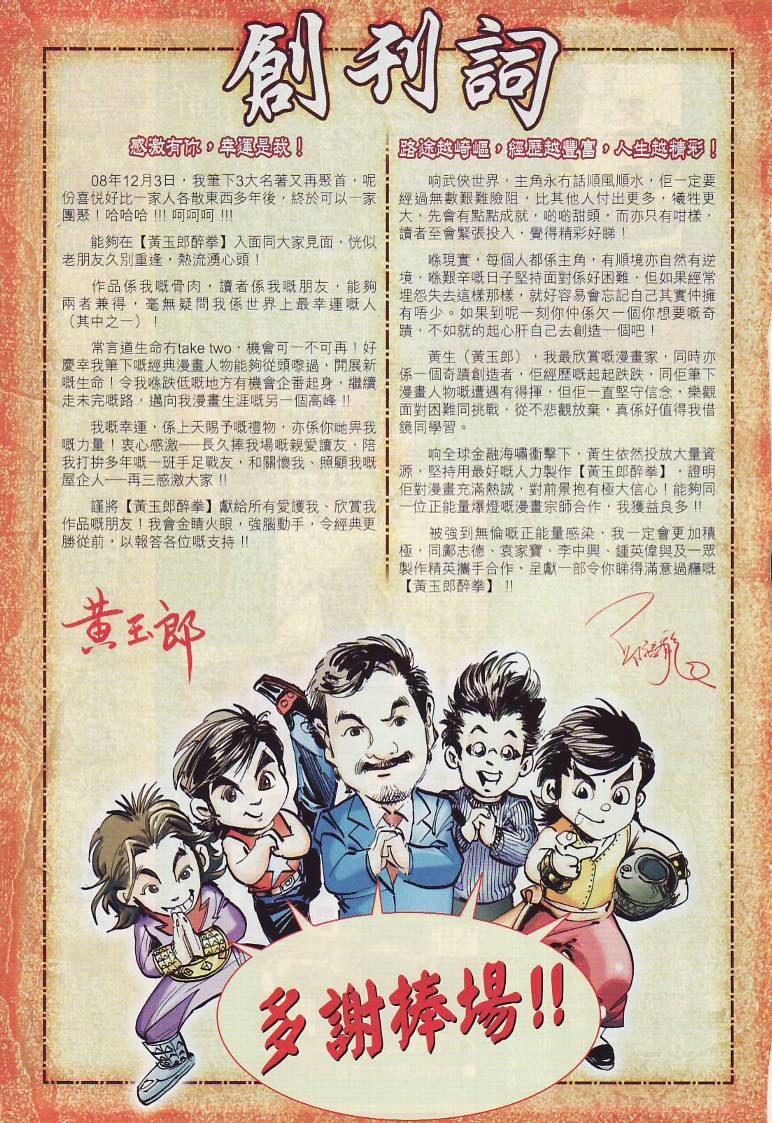 創刊詞
感激有你，幸運是我！
08年12月3日，我筆下3大名著又再聚首，呢
份喜悅好比一家人各散東西多年後，終於可以一家
團聚！哈哈哈 !!! 呵呵呵 !!!
能夠在【黃玉郎醉拳】入面同大家見面，恍似
老朋友久別重逢，熱流湧心頭！
作品係我嘅骨肉，讀者係我嘅朋友，能夠
兩者兼得，毫無疑問我係世界上最幸運嘅人
（其中之一）！
常言道生命冇take two，機會可一不可再！好
慶幸我筆下嘅經典漫畫人物能夠從頭嚟過，開展新
嘅生命！令我喺跌低嘅地方有機會企番起身，繼續
走未完嘅路，邁向我漫畫生涯嘅另一個高峰 !!
我嘅幸運，係上天賜予嘅禮物，亦係你哋畀我
嘅力量！衷心感激──長久捧我場嘅親愛讀友，陪
我打拚多年嘅一班手足戰友，和關懷我、照顧我嘅
屋企人──再三感激大家 !!
謹將【黃玉郎醉拳】獻給所有愛護我、欣賞我
作品嘅朋友！我會金睛火眼，強腦動手，令經典更
勝從前，以報答各位嘅支持 !!
黃玉郎
路途越崎嶇，經歷越豐富，人生越精彩！
响武俠世界，主角永冇話順風順水，佢一定要
經過無數艱難險阻，比其他人付出更多，犧牲更
大，先會有點點成就，啲啲甜頭，而亦只有咁樣，
讀者至會緊張投入，覺得精彩好睇！
喺現實，每個人都係主角，有順境亦自然有逆
境，喺艱辛嘅日子堅持面對係好困難，但如果經常
埋怨失去這樣那樣，就好容易會忘記自己其實仲擁
有唔少。如果到呢一刻你仲係欠一個你想要嘅奇
蹟，不如就的起心肝自己去創造一個吧！
黃生（黃玉郎），我最欣賞嘅漫畫家，同時亦
係一個奇蹟創造者，佢經歷嘅起起跌跌，同佢筆下
漫畫人物嘅遭遇有得揮，但佢一直堅守信念，樂觀
面對困難同挑戰，從不悲觀放棄，真係好值得我借
鏡同學習。
响全球金融海嘯衝擊下，黃生依然投放大量資
源，堅持用最好嘅人力製作【黃玉郎醉拳】，證明
佢對漫畫充滿熱誠，對前景抱有極大信心！能夠同
一位正能量爆燈嘅漫畫宗師合作，我獲益良多 !!
被強到無倫嘅正能量感染，我一定會更加積
極，同鄺志德、袁家寶、李中興、鍾英偉與及一眾
製作精英攜手合作，呈獻一部令你睇得滿意過癮嘅
【黃玉郎醉拳】 !!
多謝捧場!!